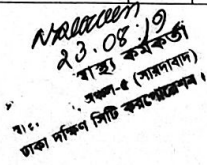 23.08.19
স্বাস্থ্য কর্মকর্তা
অঞ্চল-৫ (সায়দাবাদ)
ঢাকা দক্ষিণ সিটি করপোরেশন।